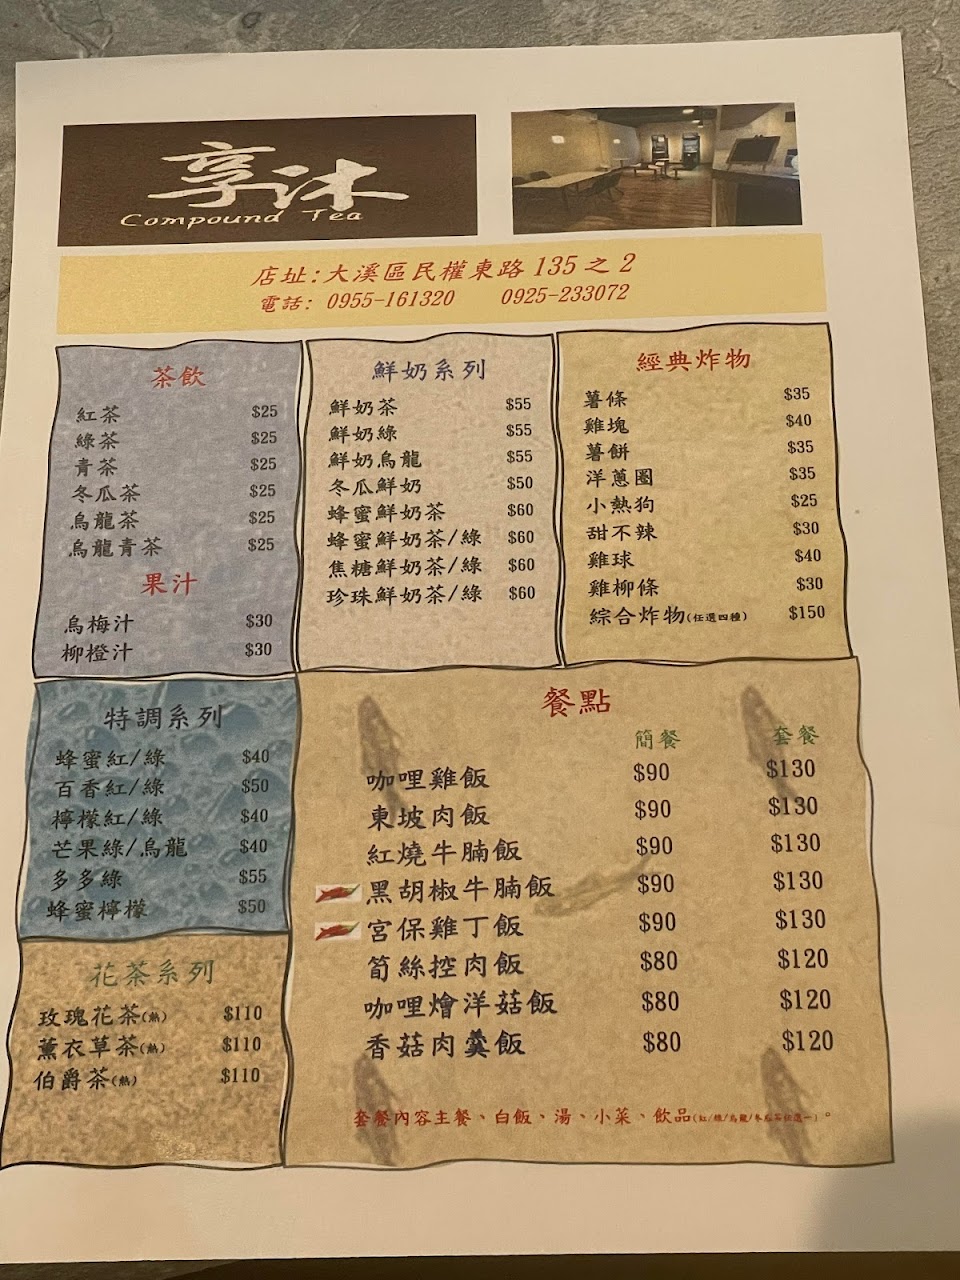 享沐
Compound Tea
店址:大溪區民權東路 135 之 2
電話: 0955-161320 0925-233072
茶飲
紅茶 $25
綠茶 $25
青茶 $25
冬瓜茶 $25
烏龍茶 $25
烏龍青茶 $25
果汁
烏梅汁 $30
柳橙汁 $30
鮮奶系列
鮮奶茶 $55
鮮奶綠 $55
鮮奶烏龍 $55
冬瓜鮮奶 $50
蜂蜜鮮奶茶 $60
蜂蜜鮮奶茶/綠 $60
焦糖鮮奶茶/綠 $60
珍珠鮮奶茶/綠 $60
經典炸物
薯條 $35
雞塊 $40
薯餅 $35
洋蔥圈 $35
小熱狗 $25
甜不辣 $30
雞球 $40
雞柳條 $30
綜合炸物(任選四種) $150
特調系列
蜂蜜紅/綠 $40
百香紅/綠 $50
檸檬紅/綠 $40
芒果綠/烏龍 $40
多多綠 $55
蜂蜜檸檬 $50
花茶系列
玫瑰花茶(熱) $110
薰衣草茶(熱) $110
伯爵茶(熱) $110
餐點
簡餐 套餐
咖哩雞飯 $90 $130
東坡肉飯 $90 $130
紅燒牛腩飯 $90 $130
黑胡椒牛腩飯 $90 $130
宮保雞丁飯 $90 $130
筍絲控肉飯 $80 $120
咖哩燴洋菇飯 $80 $120
香菇肉羹飯 $80 $120
套餐內容主餐、白飯、湯、小菜、飲品(紅/綠/烏龍/冬瓜茶任選一)。